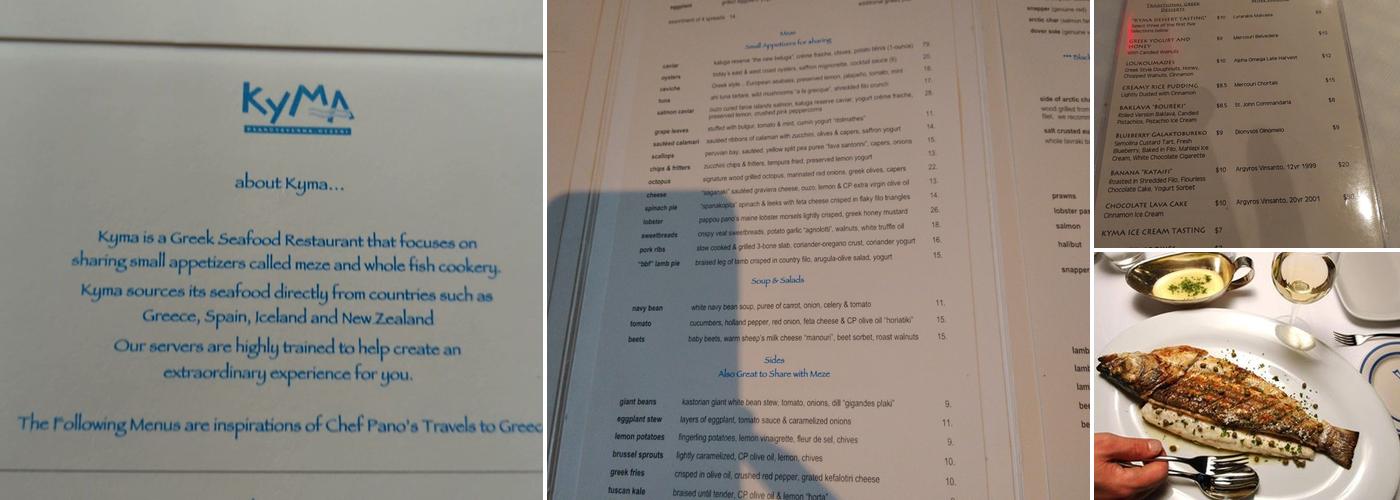 KyMA
about Kyma...
Kyma is a Greek Seafood Restaurant that focuses on
sharing small appetizers called meze and whole fish cookery.
Kyma sources its seafood directly from countries such as
Greece, Spain, Iceland and New Zealand
Our servers are highly trained to help create an
extraordinary experience for you.
The Following Menus are inspirations of Chef Pano's Travels to Greec
eggplant
assortment of 4 spreads 14
Meze
Small Appetizers for sharing
caviar kaluga reserve "the new beluga", crème fraiche, chives, potato blinis (1-ounce) 79.
oysters today's east & west coast oysters, saffron mignonette, cocktail sauce (6) 20.
ceviche Greek style.. European seabass, preserved lemon, jalapeño, tomato, mint 18.
tuna ahi tuna tartare, wild mushrooms "a la grecque", shredded filo crunch 17.
salmon caviar ouzo cured faroe islands salmon, kaluga reserve caviar, yogurt crème fraiche, 28.
preserved lemon, crushed pink peppercorns
grape leaves stuffed with bulgur, tomato & mint, cumin yogurt "dolmathes" 11.
sautéed calamari sautéed ribbons of calamari with zucchini, olives & capers, saffron yogurt 14.
scallops peruvian bay, sautéed, yellow split pea puree "fava santorini", capers, onions 15.
chips & fritters zucchini chips & fritters, tempura fried, preserved lemon yogurt 13.
octopus signature wood grilled octopus, marinated red onions, greek olives, capers 22.
cheese "saganaki" sautéed graviera cheese, ouzo, lemon & CP extra virgin olive oil 13.
spinach pie "spanakopita" spinach & leeks with feta cheese crisped in flaky filo triangles 14.
lobster pappou pano's maine lobster morsels lightly crisped, greek honey mustard 26.
sweetbreads crispy veal sweetbreads, potato garlic "agnolotti", walnuts, white truffle oil 18.
pork ribs slow cooked & grilled 3-bone slab, coriander-oregano crust, coriander yogurt 16.
"bbf" lamb pie braised leg of lamb crisped in country filo, arugula-olive salad, yogurt 15.
Soup & Salads
navy bean white navy bean soup, puree of carrot, onion, celery & tomato 11.
tomato cucumbers, holland pepper, red onion, feta cheese & CP olive oil "horiatiki" 15.
beets baby beets, warm sheep's milk cheese "manouri", beet sorbet, roast walnuts 15.
Sides
Also Great to Share with Meze
giant beans kastorian giant white bean stew, tomato, onions, dill "gigandes plaki" 9.
eggplant stew layers of eggplant, tomato sauce & caramelized onions 11.
lemon potatoes fingerling potatoes, lemon vinaigrette, fleur de sel, chives 9.
brussel sprouts lightly caramelized, CP olive oil, lemon, chives 10.
greek fries crisped in olive oil, crushed red pepper, grated kefalotiri cheese 10.
tuscan kale braised until tender, CP olive oil & lemon "horta"
snapper (genuine red)
arctic char (salmon fa
dover sole (genuine
*** Black
side of arctic cha
wood grilled
filet, we recomm
salt crusted
whole lavraki
prawns
lobster pas
salmon
halibut
snapper
lamb
lamb
lam
bee
be
Traditional Greek
Desserts
"Kyma Dessert Tasting" $10
Select three of the first five
selections below
Greek Yogurt and $9 Mercouri Belvedere $10
Honey
with Candied Walnuts
Loukoumades $10 Alpha Omega Late Harvest $12
Greek Style Doughnuts, Honey,
Chopped Walnuts, Cinnamon
Creamy Rice Pudding $8.5 Mercouri Chortais $15
Lightly Dusted with Cinnamon
Baklava "Boureki" $8.5 St. John Commandaria $8
Rolled Version Baklava, Candied
Pistachios, Pistachio Ice Cream
Blueberry Galaktoboureko $9 Dionysos Oinomelo $9
Semolina Custard Tart, Fresh
Blueberry, Baked in Filo, Mahlepi Ice
Cream, White Chocolate Cigarette
Banana "Kataifi" $10 Argyros Vinsanto, 12yr 1999 $20
Roasted in Shredded Filo, Flourless
Chocolate Cake, Yogurt Sorbet
Chocolate Lava Cake $10 Argyros Vinsanto, 20yr 2001
Cinnamon Ice Cream
Kyma Ice Cream Tasting $7